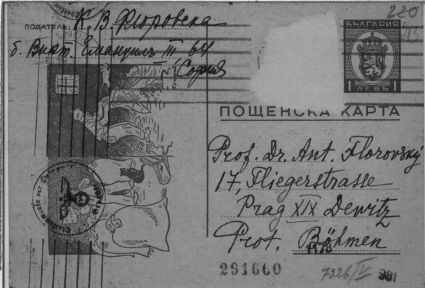 ПОДАТЕЛЬ: К. В. Флоровска
б. Викт. Емануилъ III 64
София
220
БЪЛГАРИЯ
1 ЛЕВЪ 1
ПОЩЕНСКА КАРТА
Prof. Dr. Ant. Florovský
17, Fliegerstrasse
Prag XIX Dewitz
Prot. Böhmen
291660
7326/V